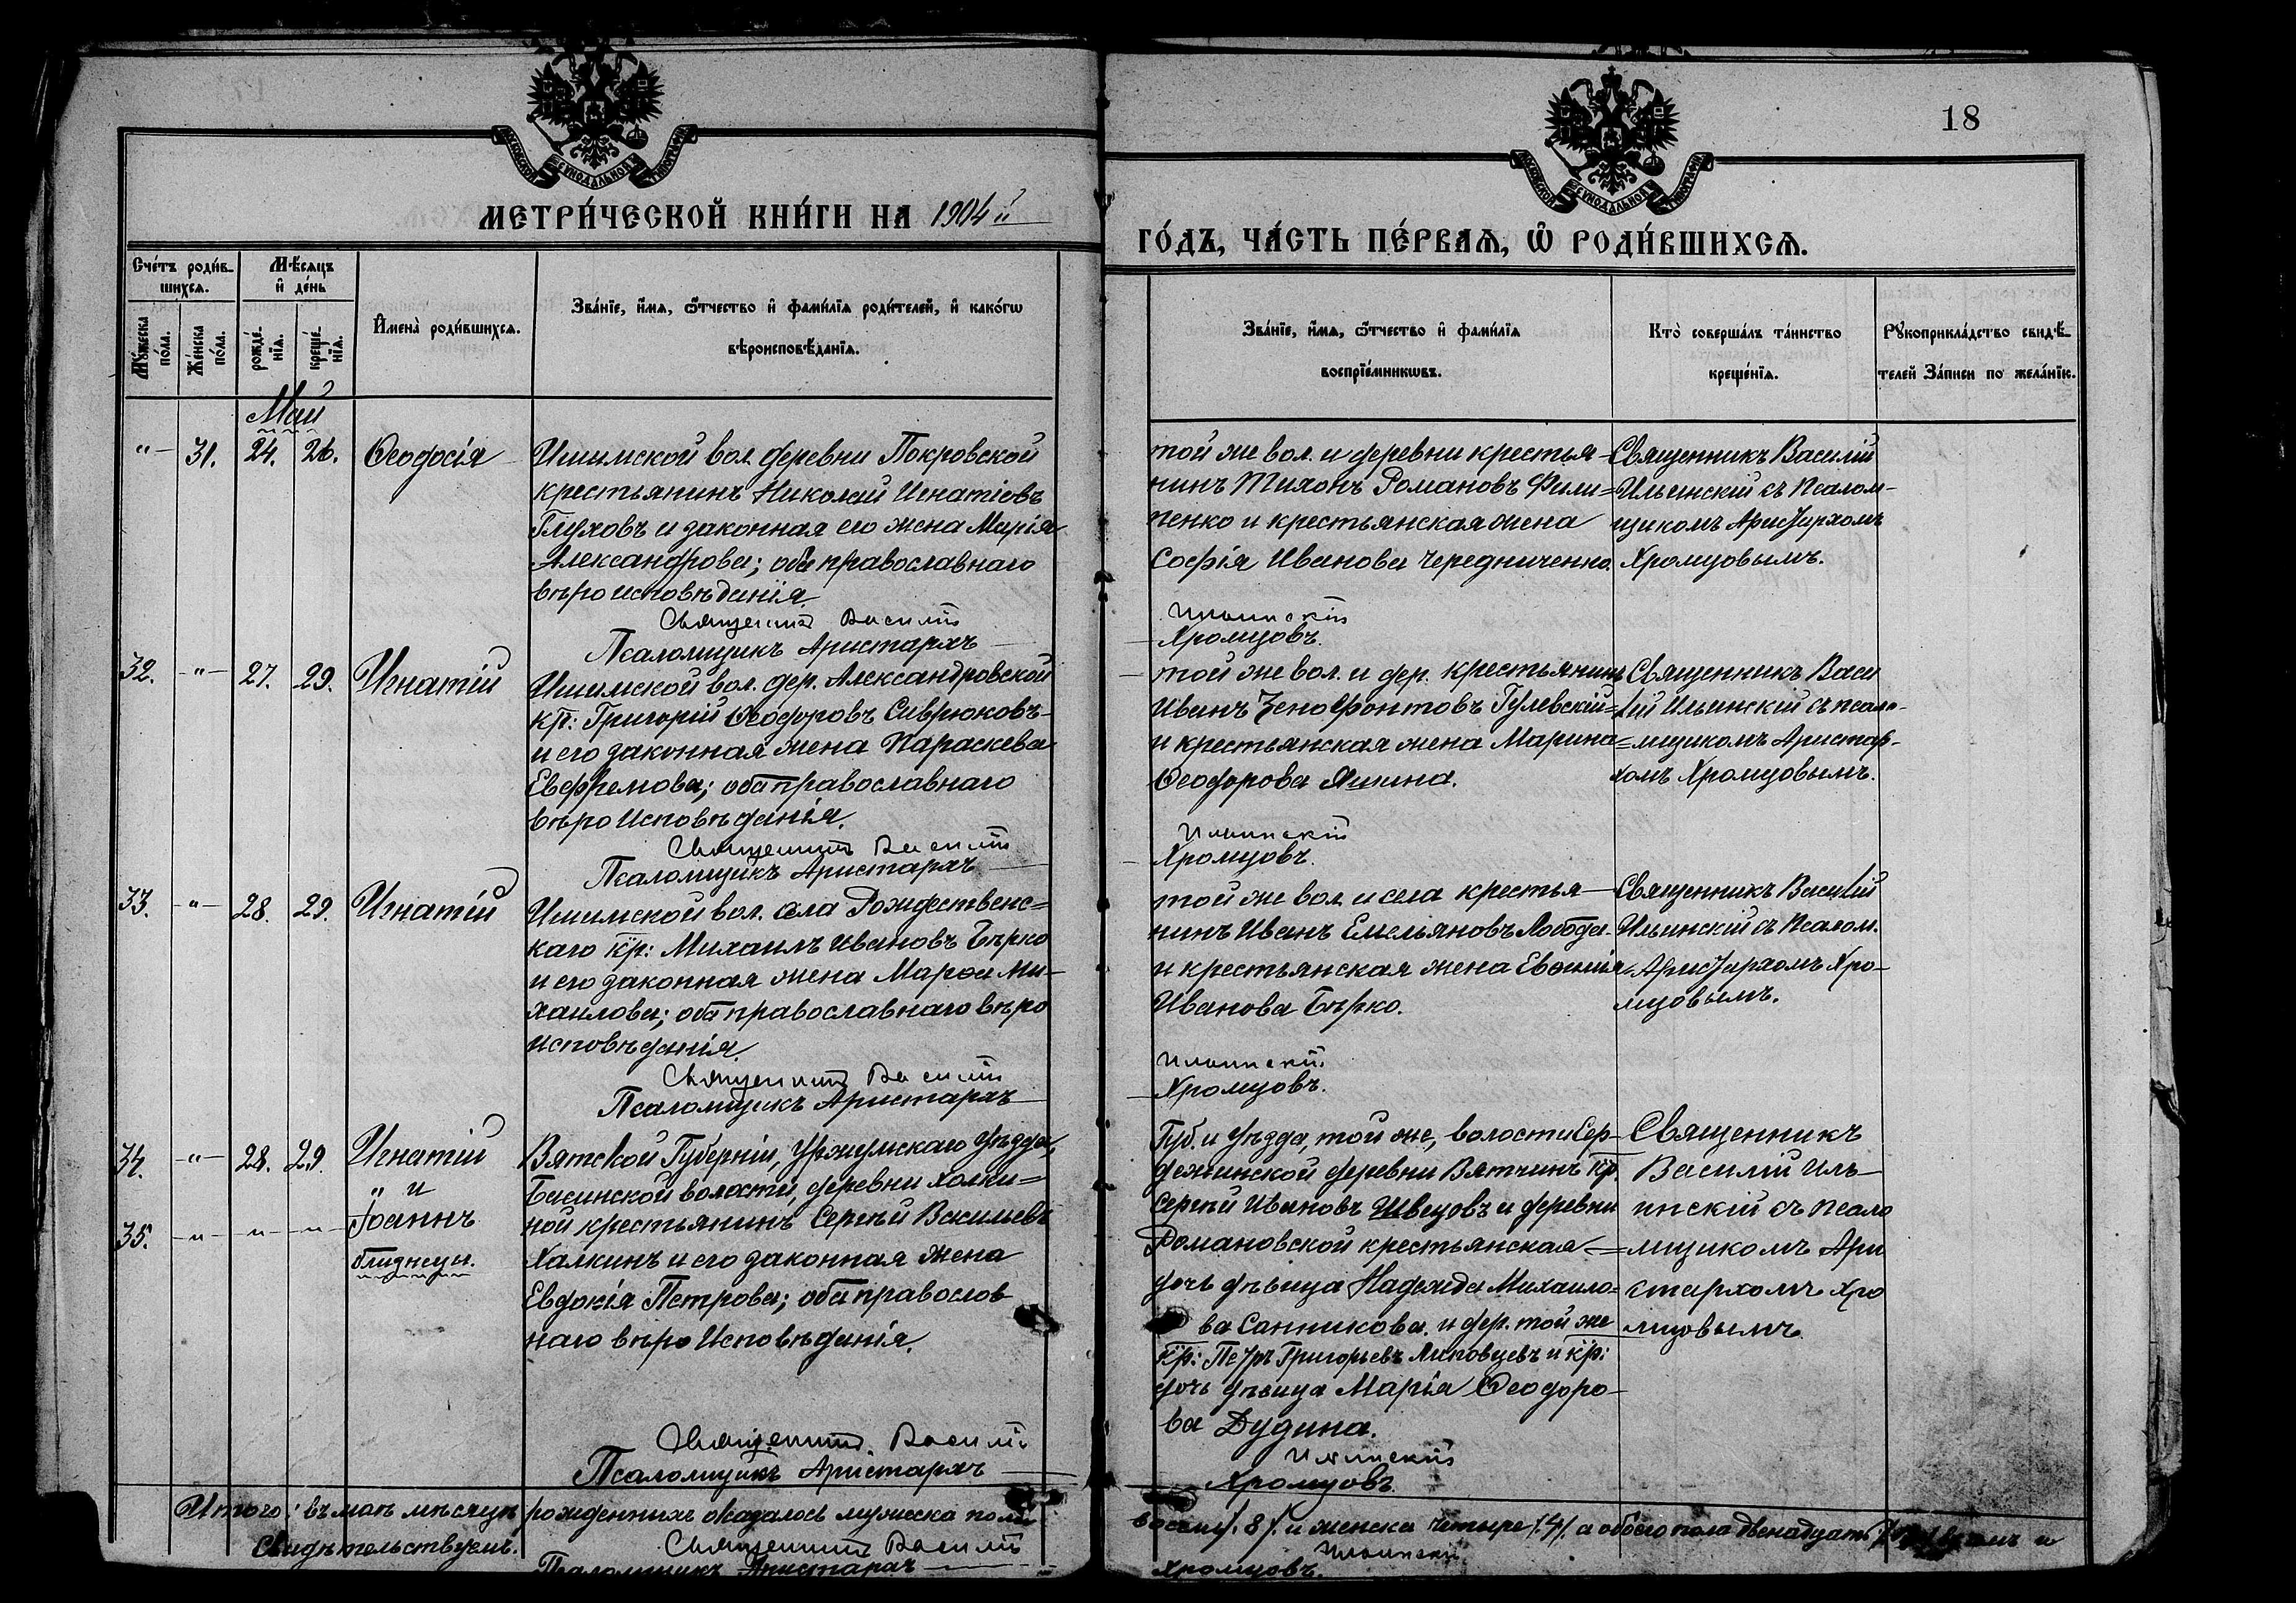 18
МОСКОВСКОЙ СѴНОДАЛЬНОЙ ТИПОГРАФІИ
МОСКОВСКОЙ СѴНОДАЛЬНОЙ ТИПОГРАФІИ
МЕТРИ́ЧЕСКОЙ КНИ́ГИ НА 1904й
ГО́ДЪ, ЧА́СТЬ ПЕ́РВАѦ, Ѽ РОДИ́ВШИХСѦ.
Сче́тъ роди́в-
шихсѧ.
Мѣ́сѧцъ
и҆ де́нь
Мꙋ́жеска по́ла.
Же́нска по́ла.
рожде́-
нїѧ.
креще́-
нїѧ.
И҆мена̀ роди́вшихсѧ.
Зва́нїе, и҆́мѧ, ѻ҆́тчество и҆ фами́лїѧ роди́телей, и҆ како́гѡ
вѣроисповѣ́данїѧ.
Зва́нїе, и҆́мѧ, ѻ҆́тчество и҆ фами́лїѧ
воспрїе́мникѡвъ.
Кто̀ соверша́лъ та́инство
креще́нїѧ.
Рꙋкоприкла́дство свидѣ́-
телей За́писи по жела́нїю.
Май
"— 31. 24. 26. Ѳеодосія
Ишимской вол. деревни Покровской
крестьянинъ Николай Игнатіевъ
Глуховъ и законная его жена Марія
Александрова; оба православнаго
вѣроисповѣданія.
Священникъ Василій
Псаломщикъ Аристархъ
той же вол. и деревни крестья-
нинъ Тихонъ Романовъ Фили=
пенко и крестьянская жена
Софія Иванова Чередниченко.
Ильинскій
Хромцовъ.
Священникъ Василій
Ильинскій съ Псалом-
щикомъ Аристархомъ
Хромцовымъ.
32. "— 27. 29. Игнатій
Ишимской вол. дер. Александровской
кр: Григорій Ѳеодоровъ Сиврюковъ
и его законная жена Параскева
Евфремова; оба православнаго
вѣроисповѣданія.
Священникъ Василій
Псаломщикъ Аристархъ
той же вол. и дер. крестьянинъ
Иванъ Зенофонтовъ Гулевскій=
и крестьянская жена Марина=
Ѳеодорова Яшина.
Ильинскій
Хромцовъ.
Священникъ Васи
лій Ильинскій съ псало-
мщикомъ Аристар-
хомъ Хромцовымъ.
33. "— 28. 29. Игнатій
Ишимской вол. села Рождественс=
каго кр: Михаилъ Ивановъ Бѣрко
и его законная жена Марѳа Ми-
хаилова; оба православнаго вѣро
исповѣданія.
Священникъ Василій
Псаломщикъ Аристархъ
той же вол. и села крестья-
нинъ Иванъ Емельяновъ Лобода
и крестьянская жена Евѳимія
Иванова Бѣрко.
Ильинскій
Хромцовъ.
Священникъ Василій
Ильинскій съ Псалом.
Аристархомъ Хро-
мцовымъ.
34. "— 28. 29. Игнатій
" и
35. —"— —"— —"— Іоаннъ
близнецы.
Вятской Губерніи, Уржумскаго уѣзда,
волости, деревни Холки=
ной крестьянинъ Сергѣй Васильевъ
Халкинъ и его законная жена
Евдокія Петрова; оба православ
наго вѣроИсповѣданія.
Священникъ Василій
Псаломщикъ Аристархъ
Губ. и уѣзда, той же, волости Сер-
деревни Вятчинъ кр.
Сергѣй Ивановъ Швецовъ и деревни
Романовской крестьянская
дочь дѣвица Надежда Михаило=
ва Санникова. и дер. той же
кр: Петръ Григорьевъ Липовцевъ и кр:
дочь дѣвица Марія Ѳеодоро-
ва Дудина.
Ильинскій
Хромцовъ.
Священникъ
Василій Иль-
инскій съ псало
мщикомъ Ари
стархомъ Хро
мцовымъ.
Итого: въ маѣ мѣсяцѣ рожденныхъ оказалось мужеска пола
восемь /8/. и женска четыре /4/. а обоего пола двенадцать
Свидѣтельствуемъ.
Священникъ Василій Ильинскій
Псаломщикъ Аристархъ Хромцовъ.